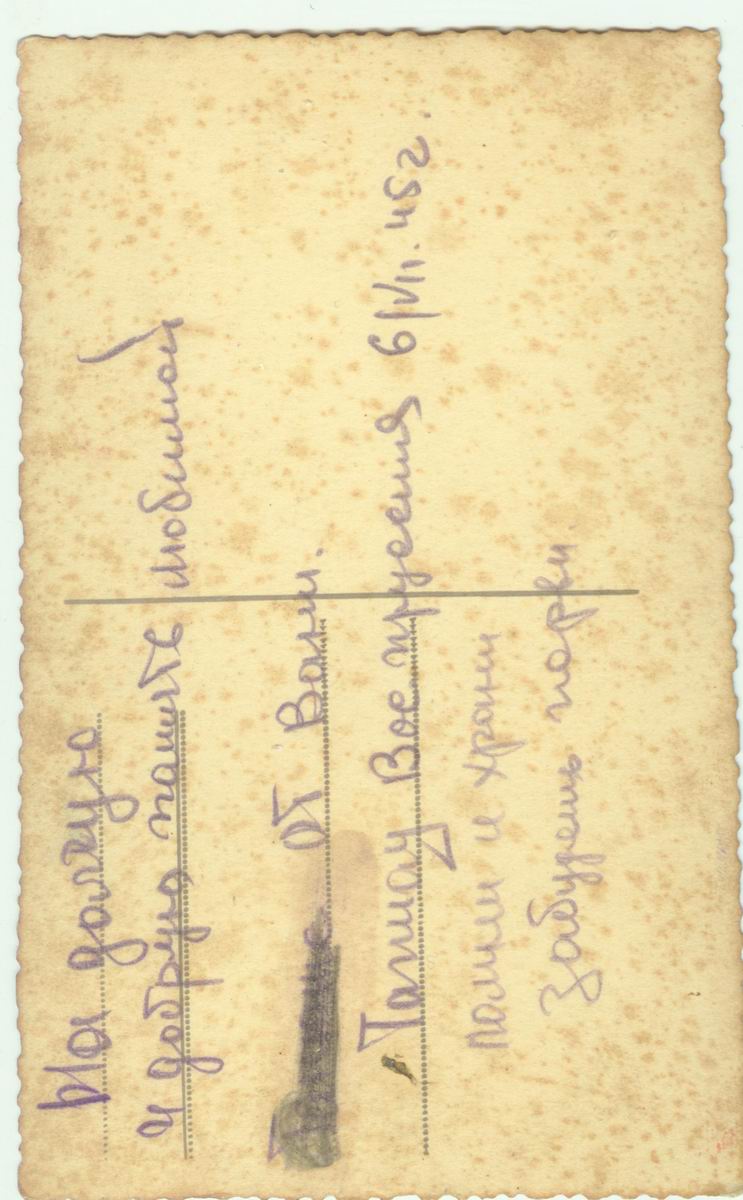 На долгую
и добрую память любимой
от Вани.
Тапиау Вос пруссия 6/VII. 45 г.
помни и храни
Забудешь порви.